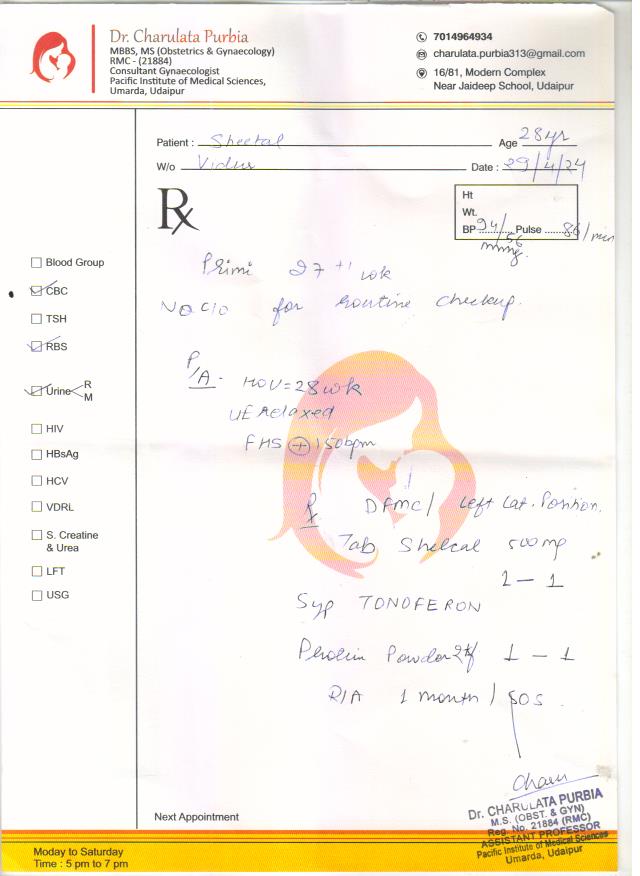 Dr. Charulata Purbia
MBBS, MS (Obstetrics & Gynaecology)
RMC - (21884)
Consultant Gynaecologist
Pacific Institute of Medical Sciences,
Umarda, Udaipur
7014964934
charulata.purbia313@gmail.com
16/81, Modern Complex
Near Jaideep School, Udaipur
Patient : Sheetal Age 28yr
W/o Date : 29/4/24
Rx
Ht
Wt.
BP 94/56 mmHg. Pulse 86/min
Blood Group
CBC
TSH
RBS
Urine R
M
HIV
HBsAg
HCV
VDRL
S. Creatine
& Urea
LFT
USG
Primi 27 +1 wk
No c/o for routine checkup.
P/A - HOU = 28 wk
UE Relaxed
FHS + 150bpm
Rx DFMC / Left Lat. Position.
Tab Shelcal 500mg
1 - 1
Syp TONOFERON
Protein Powder 1 - 1
R/A 1 month / SOS
Charu
Dr. CHARULATA PURBIA
M.S. (OBST. & GYN)
Reg. No. 21884 (RMC)
ASSISTANT PROFESSOR
Pacific Institute of Medical Sciences
Umarda, Udaipur
Next Appointment
Moday to Saturday
Time : 5 pm to 7 pm